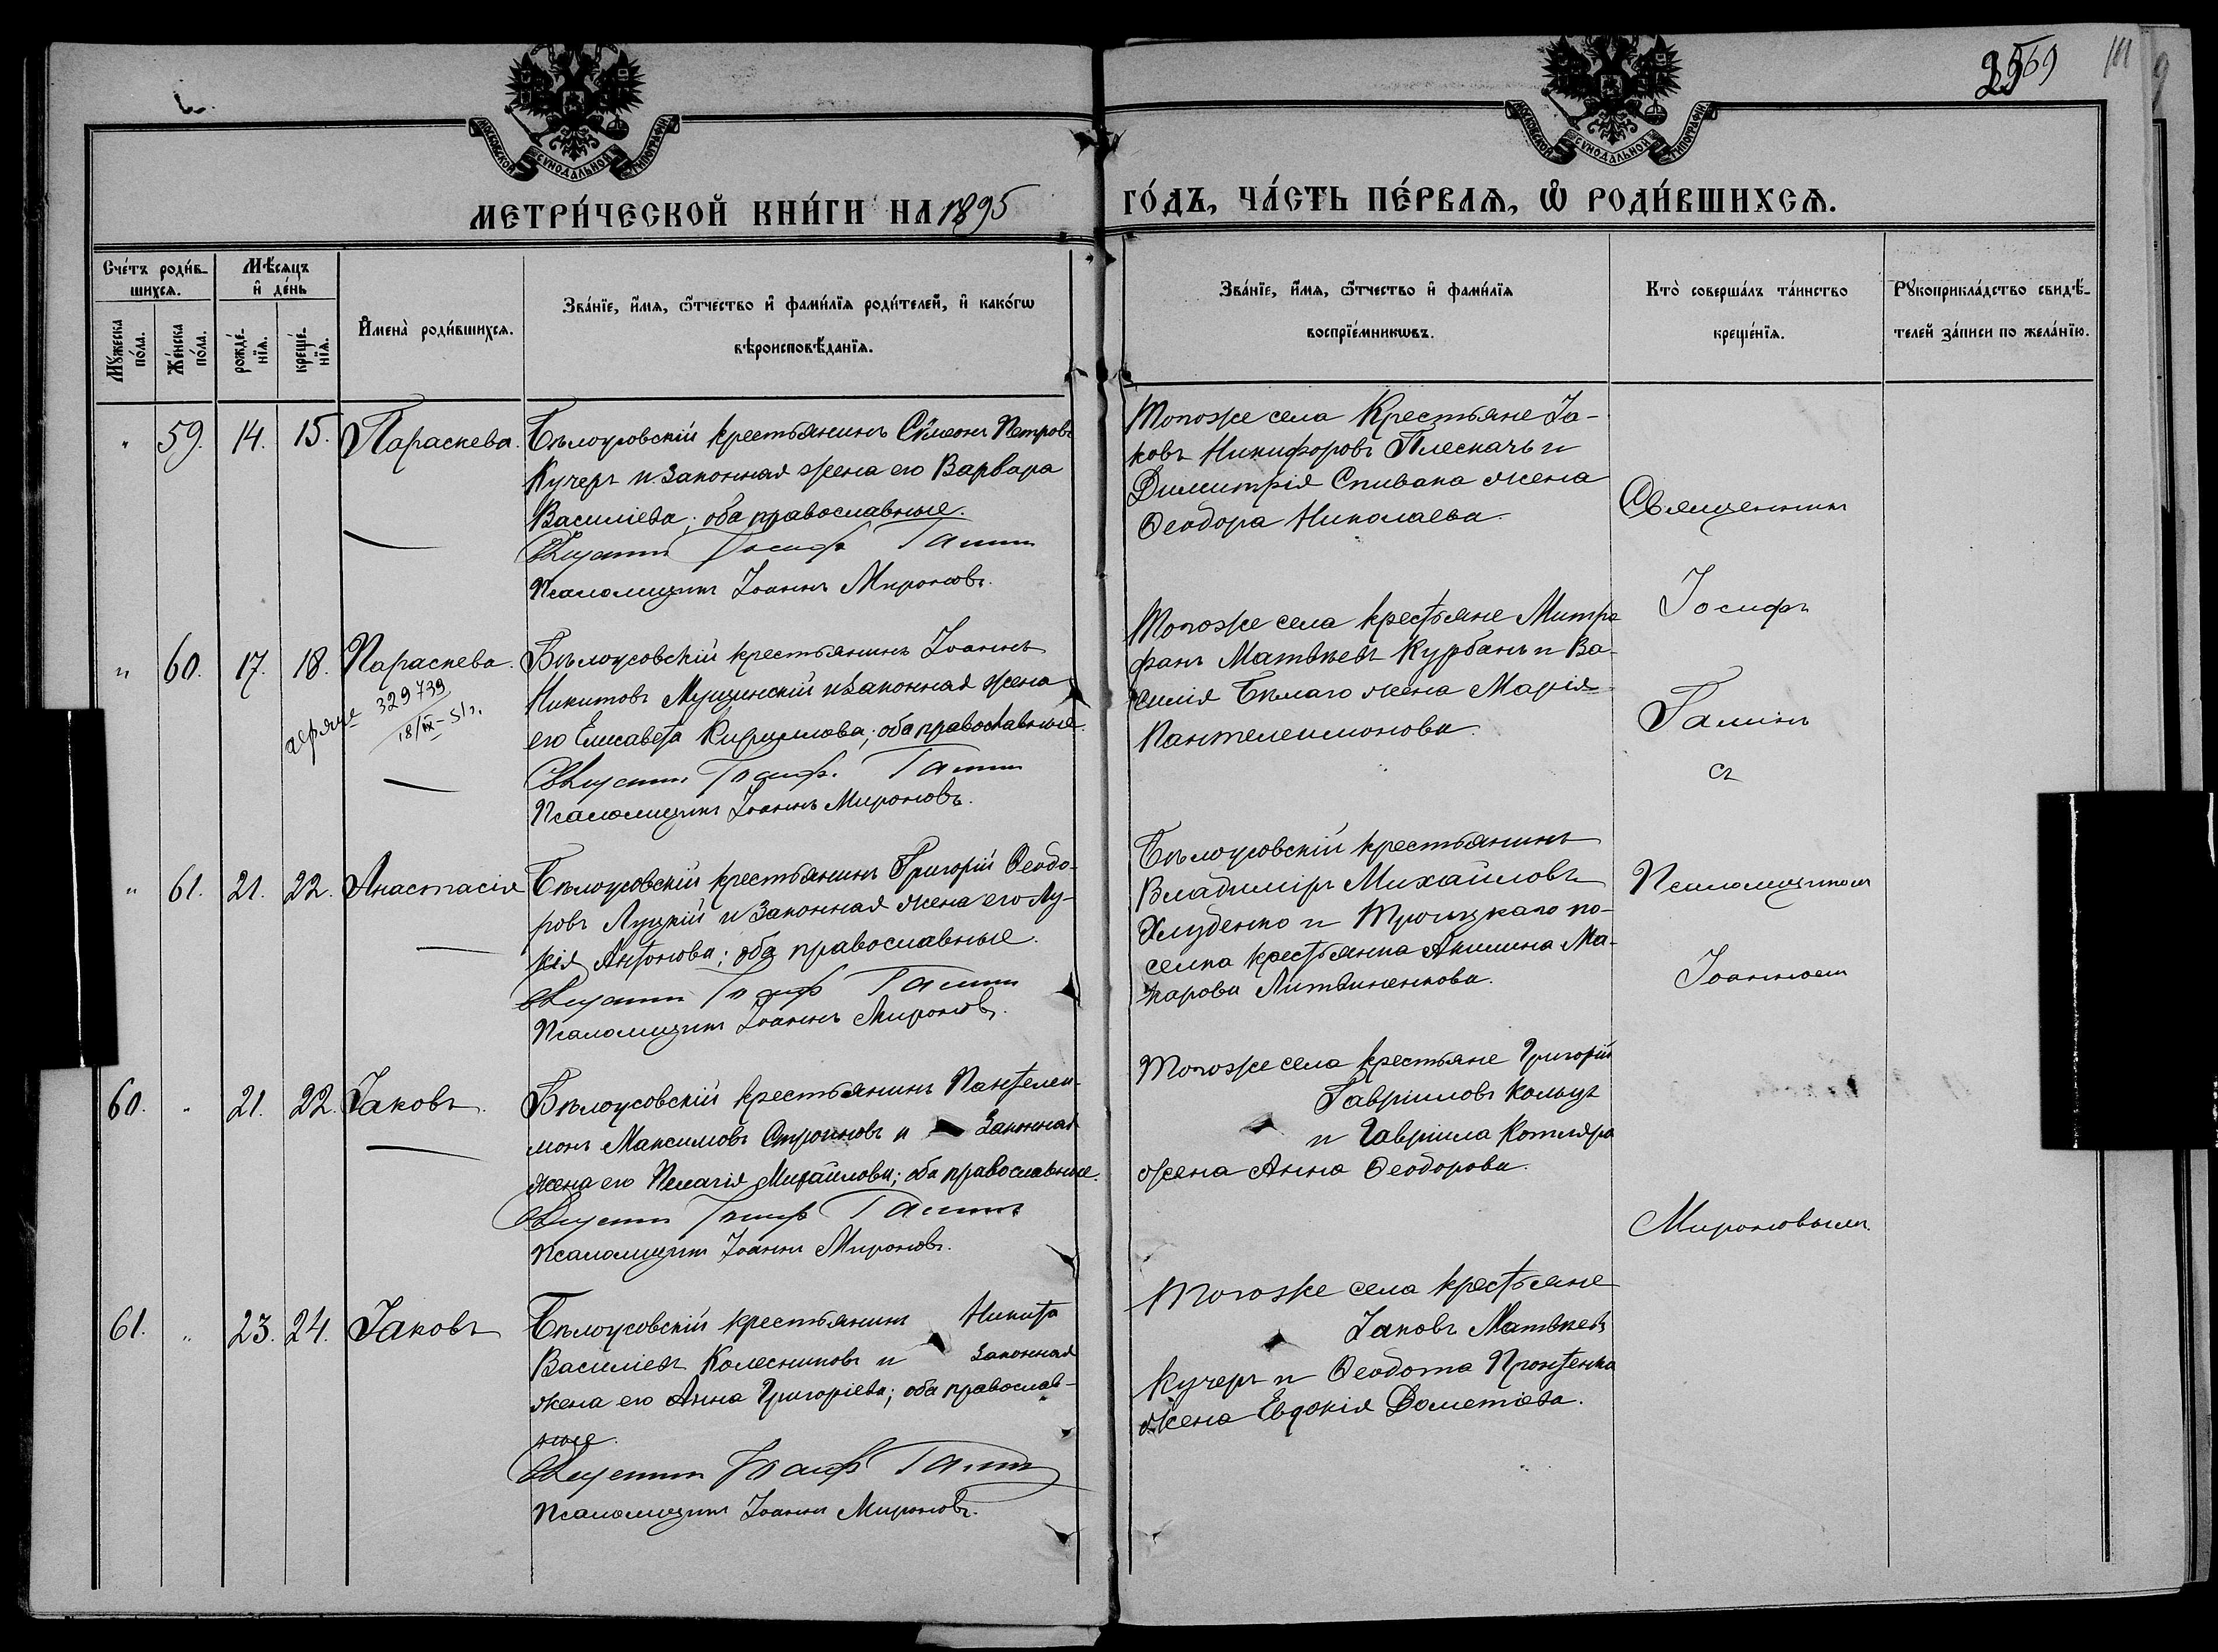 2569
МОСКОВСКОЙ СѴНОДАЛЬНОЙ ТИПОГРАФІИ
МОСКОВСКОЙ СѴНОДАЛЬНОЙ ТИПОГРАФІИ
МЕТРИ́ЧЕСКОЙ КНИ́ГИ НА 1895
ГО́ДЪ, ЧА́СТЬ ПЕ́РВАѦ, Ѽ РОДИ́ВШИХСѦ.
Сче́тъ роди́в-
шихсѧ.
Мꙋ́жеска по́ла.
Же́нска по́ла.
Мѣ́сѧцъ
и҆ де́нь
рожде́-
нїѧ.
креще́-
нїѧ.
И҆мена̀ роди́вшихсѧ.
Зва́нїе, и҆́мѧ, ѻ҆́тчество и҆ фами́лїѧ роди́телей, и҆ како́гѡ
вѣроисповѣ́данїѧ.
Зва́нїе, и҆́мѧ, ѻ҆́тчество и҆ фами́лїѧ
воспрїе́мникѡвъ.
Кто̀ соверша́лъ та́инство
креще́нїѧ.
Рꙋкоприкла́дство свидѣ́-
телей за́писи по жела́нїю.
" 59. 14. 15. Параскева.
Бѣлоусовскій крестьянинъ Сѵмеонъ Петровъ
Кучеръ и законная жена его Варвара
Василіева; оба православные.
Священникъ Іосифъ Галинъ
Псаломщикъ Іоаннъ Мироновъ.
Тогоже села Крестьяне Іа-
ковъ Никифоровъ Плескачъ и
Димитрія Спивака жена
Ѳеодора Николаева.
" 60. 17. 18. Параскева.
329739
18/IX-51г.
Бѣлоусовскій крестьянинъ Іоаннъ
Никитовъ Мущинскій и законная жена
его Елисавета Кириллова; оба православные.
Священникъ Іосифъ Галинъ
Псаломщикъ Іоаннъ Мироновъ.
Тогоже села крестьяне Митро
фанъ Матвѣевъ Курбанъ и Ва-
силія Бѣлаго жена Марія
Пантелеимонова.
" 61. 21. 22. Анастасія
Бѣлоусовскій крестьянинъ Григорій Ѳеодо-
ровъ Луцкій и законная жена его Лу-
кія Антонова; оба православные.
Священникъ Іосифъ Галинъ
Псаломщикъ Іоаннъ Мироновъ.
Бѣлоусовскій крестьянинъ
Владиміръ Михайловъ
Хлуденко и Троицкаго по-
селка крестьянка Акилина Ма-
карова Литвиненкова.
60. " 21. 22. Іаковъ.
Бѣлоусовскій крестьянинъ Пантелеи-
монъ Максимовъ Строиновъ и законная
жена его Пелагія Михайлова; оба православные.
Священникъ Іосифъ Галинъ
Псаломщикъ Іоаннъ Мироновъ.
Тогоже села крестьяне Григорій
Гавріиловъ Кольцъ
и Гавріила Котляра
жена Анна Ѳеодорова.
61. " 23. 24. Іаковъ
Бѣлоусовскій крестьянинъ Никита
Василіевъ Колесниковъ и законная
жена его Анна Григоріева; оба православ-
ные.
Священникъ Іосифъ Галинъ
Псаломщикъ Іоаннъ Мироновъ.
Тогоже села крестьяне
Іаковъ Матвѣевъ
Кучеръ и Ѳеодота Пронтенка
жена Евдокія Дометіева.
Священникъ
Іосифъ
Галинъ
съ
Псаломщикомъ
Іоанномъ
Мироновымъ.